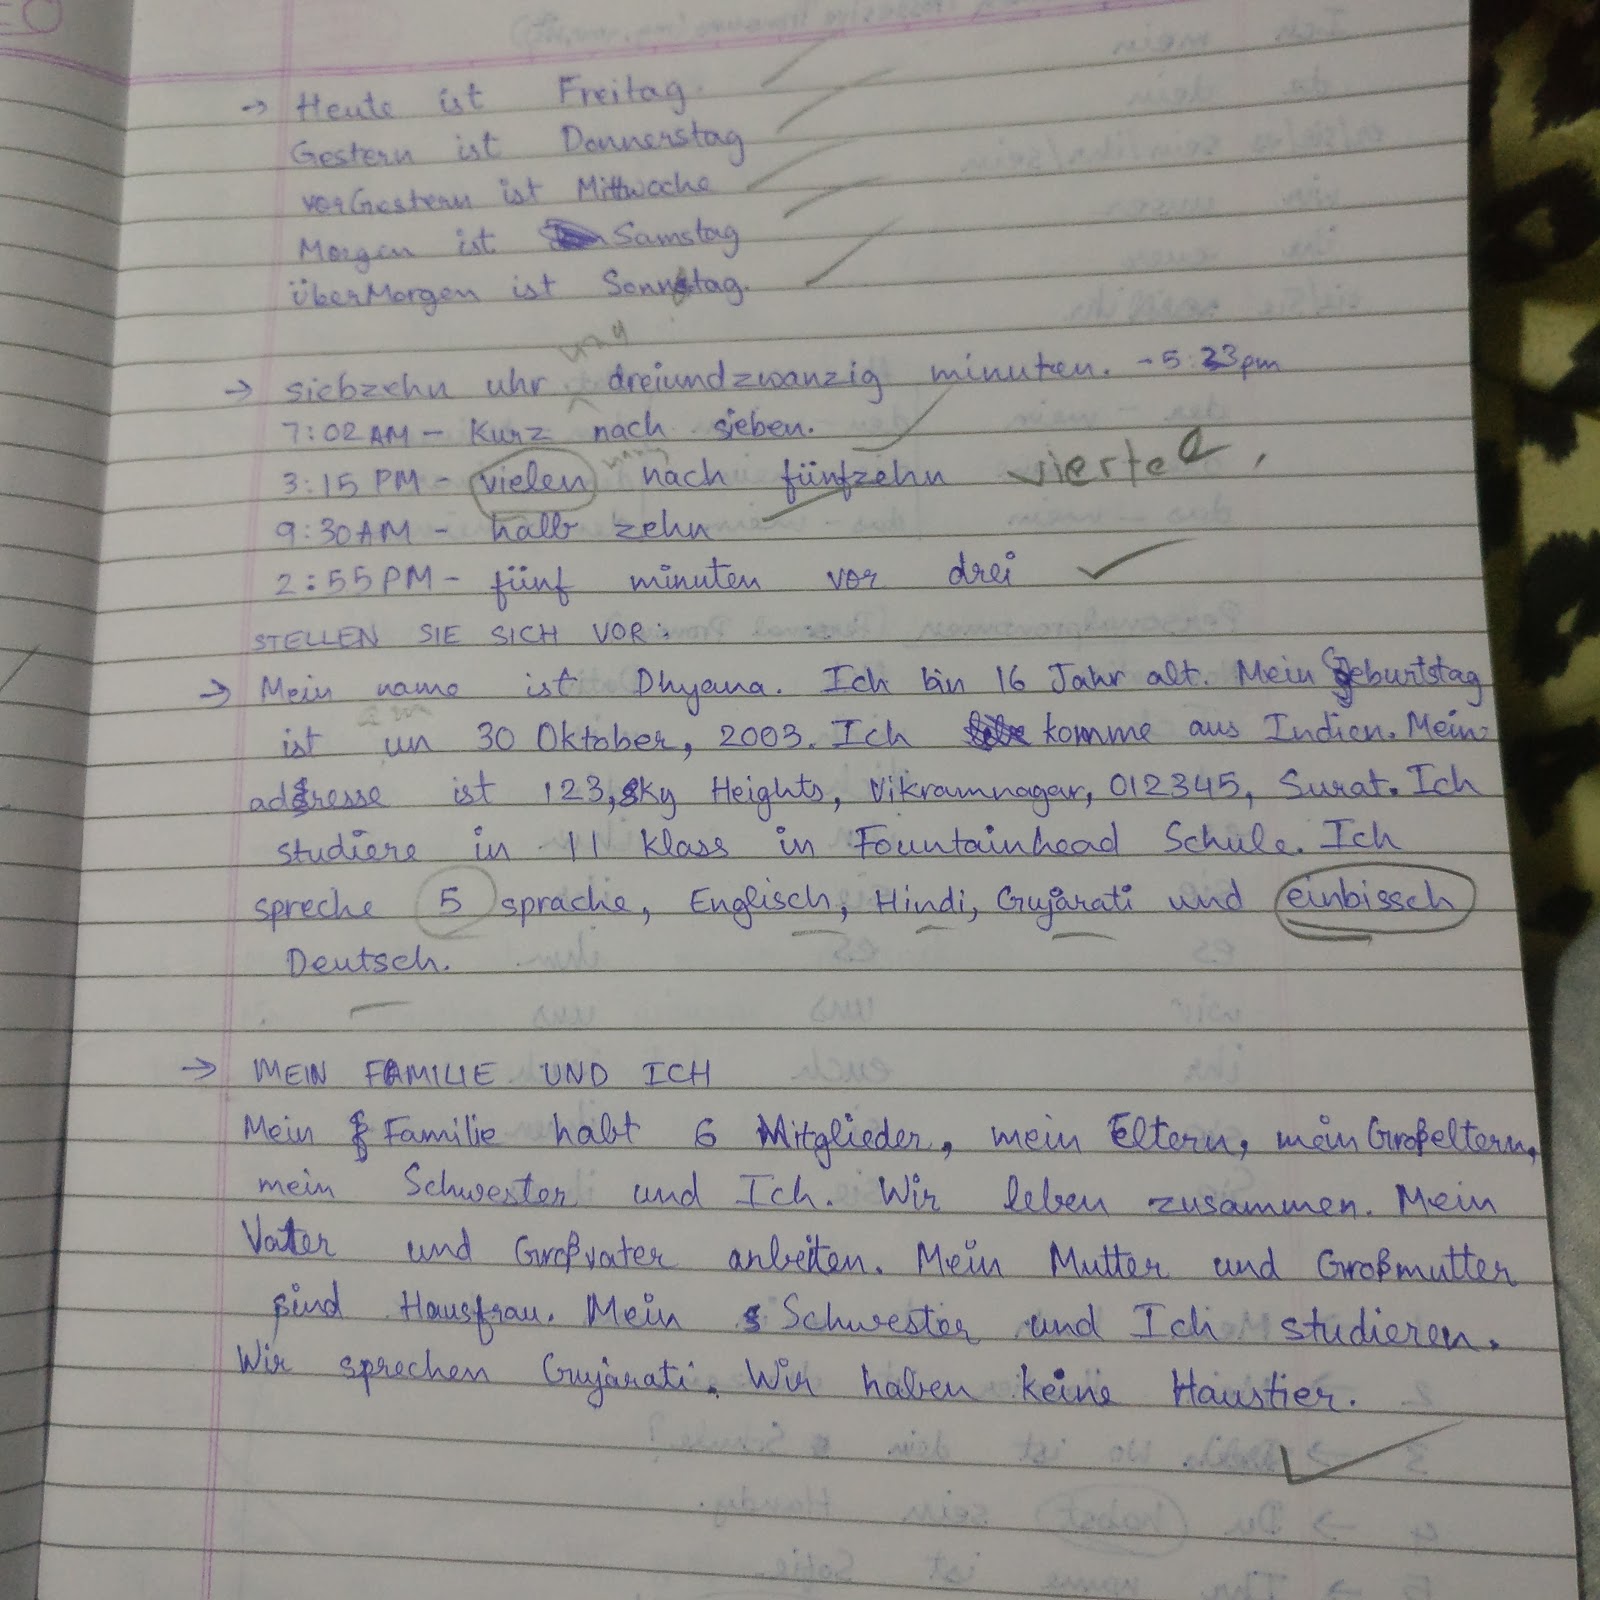 → Heute ist Freitag.
Gestern ist Donnerstag
vorGestern ist Mittwoche
Morgen ist Samstag
überMorgen ist Sonntag.
und
→ siebzehn uhr dreiundzwanzig minuten. - 5:23pm
7:02 AM - Kurz nach sieben.
3:15 PM - vielen nach fünfzehn viertel
9:30AM - halb zehn
2:55PM - fünf minuten vor drei
STELLEN SIE SICH VOR:
→ Mein name ist Dhyana. Ich bin 16 Jahr alt. Mein Geburtstag
ist un 30 Oktober, 2003. Ich komme aus Indien. Mein
adresse ist 123, Sky Heights, Vikramnagar, 012345, Surat. Ich
studiere in 11 klass in Fountainhead Schule. Ich
spreche 5 sprache, Englisch, Hindi, Gujarati und einbissch
Deutsch.
→ MEIN FAMILIE UND ICH
Mein Familie habt 6 Mitglieder, mein Eltern, mein Großeltern,
mein Schwester und Ich. Wir leben zusammen. Mein
Vater und Großvater anbeiten. Mein Mutter und Großmutter
sind Hausfrau. Mein Schwester und Ich studieren.
Wir sprechen Gujarati. Wir haben keine Haustier.